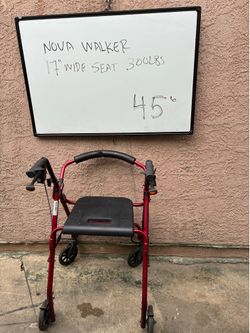 NOVA WALKER
17" WIDE SEAT 300LBS
45